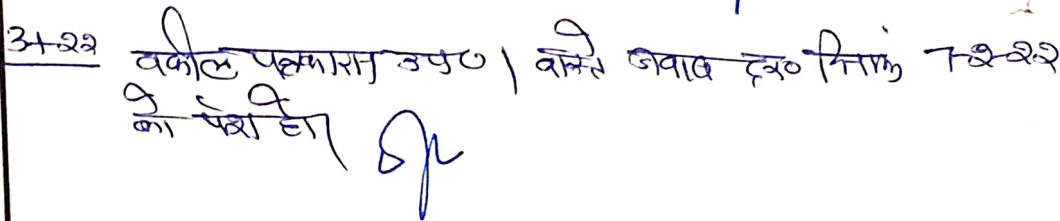 3-1-22 वकील पक्षकारान उप० । वास्ते जवाब दर० दिनांक 7-2-22
को पेश हो।